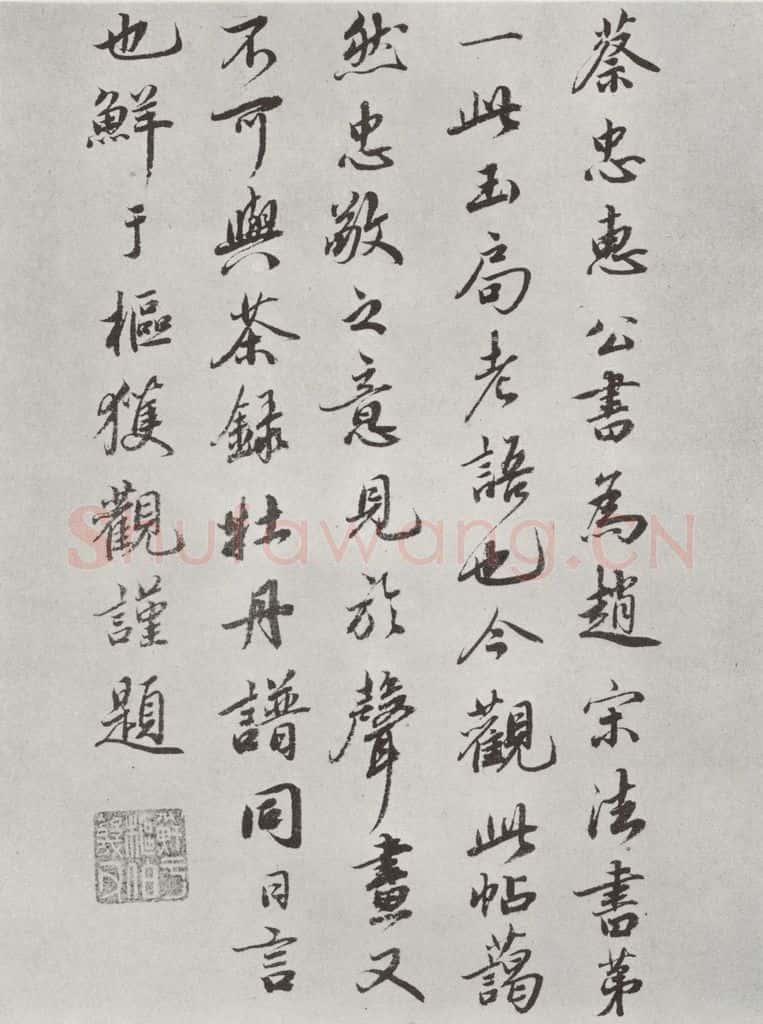 蔡忠惠公書為趙宋法書苐
一此玉局老語也今觀此帖藹
然忠敬之意見於聲畫又
不可與茶録牡丹譜同日言
也鮮于樞獲觀謹題
Shufawang.CN